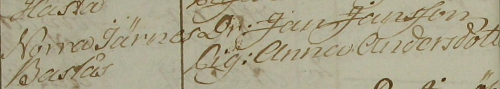 Hasta
Norra Järnes Dr: Jan Jansson
Baslås Pig: Anna Andersdott